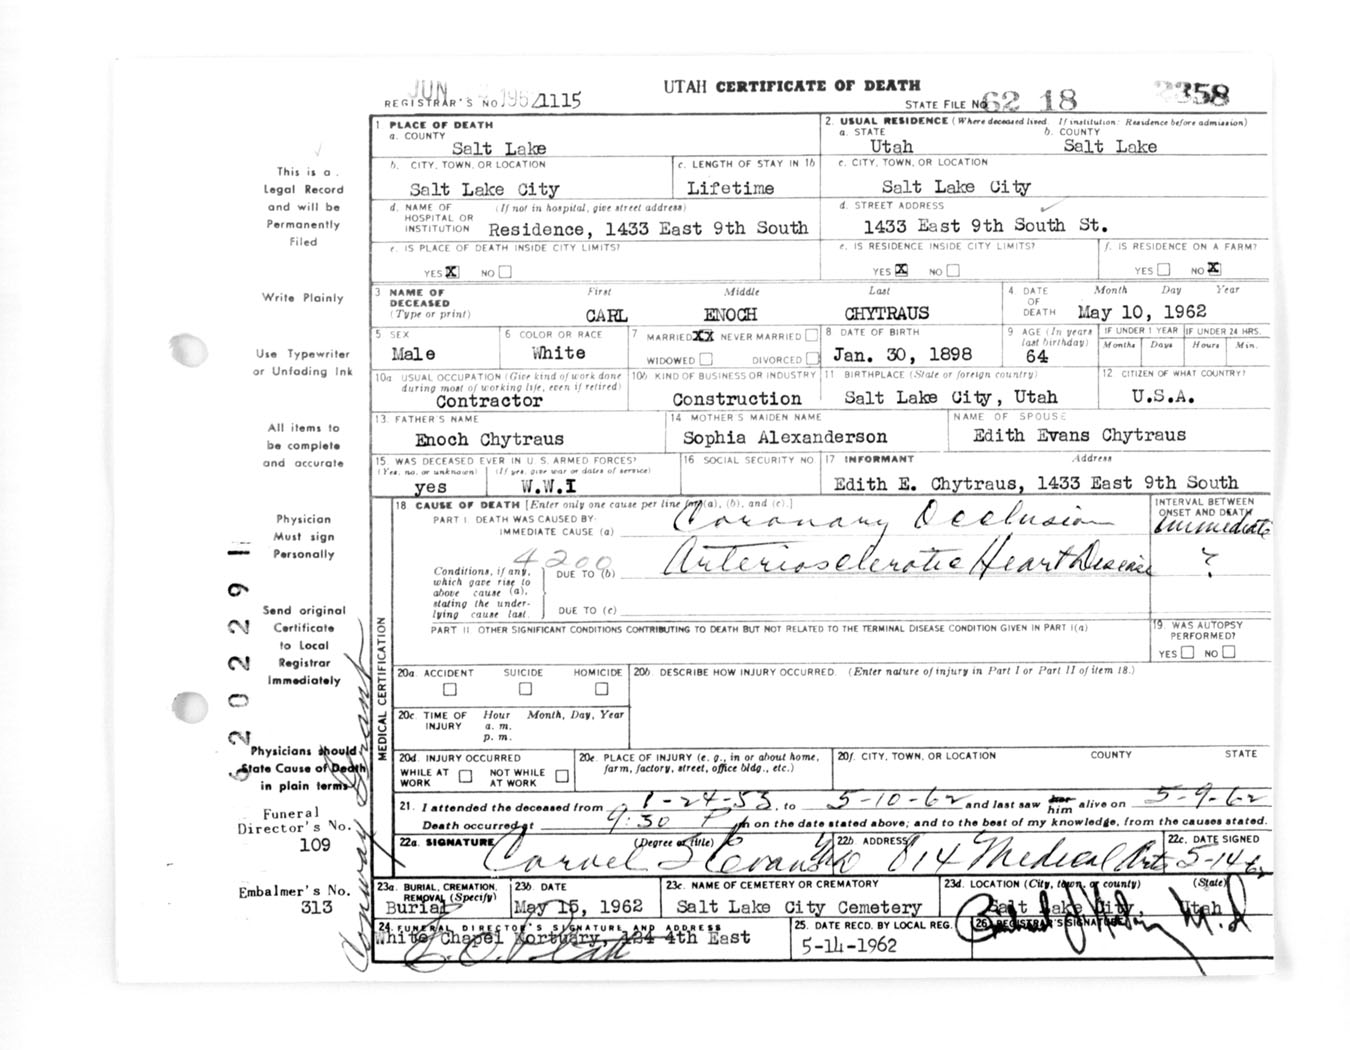 JUN 1962
UTAH CERTIFICATE OF DEATH
REGISTRAR'S NO. 1115
STATE FILE NO. 62 18 2358
1 PLACE OF DEATH
a. COUNTY
Salt Lake
2. USUAL RESIDENCE (Where deceased lived. If institution: Residence before admission)
a. STATE b. COUNTY
Utah Salt Lake
b. CITY, TOWN, OR LOCATION
Salt Lake City
c. LENGTH OF STAY IN 1b
Lifetime
c. CITY, TOWN, OR LOCATION
Salt Lake City
d. NAME OF (If not in hospital, give street address)
HOSPITAL OR
INSTITUTION Residence, 1433 East 9th South
d. STREET ADDRESS
1433 East 9th South St.
e. IS PLACE OF DEATH INSIDE CITY LIMITS?
YES X NO
e. IS RESIDENCE INSIDE CITY LIMITS?
YES X NO
f. IS RESIDENCE ON A FARM?
YES NO X
3 NAME OF First Middle Last
DECEASED
(Type or print) CARL ENOCH CHYTRAUS
4. DATE Month Day Year
OF
DEATH May 10, 1962
5 SEX
Male
6 COLOR OR RACE
White
7 MARRIED XX NEVER MARRIED
WIDOWED DIVORCED
8 DATE OF BIRTH
Jan. 30, 1898
9 AGE (In years
last birthday)
64
IF UNDER 1 YEAR IF UNDER 24 HRS.
Months Days Hours Min.
10a USUAL OCCUPATION (Give kind of work done
during most of working life, even if retired)
Contractor
10b KIND OF BUSINESS OR INDUSTRY
Construction
11 BIRTHPLACE (State or foreign country)
Salt Lake City, Utah
12 CITIZEN OF WHAT COUNTRY?
U.S.A.
13. FATHER'S NAME
Enoch Chytraus
14 MOTHER'S MAIDEN NAME
Sophia Alexanderson
NAME OF SPOUSE
Edith Evans Chytraus
15 WAS DECEASED EVER IN U. S. ARMED FORCES?
(Yes, no, or unknown) (If yes, give war or dates of service)
yes W.W.I
16 SOCIAL SECURITY NO
17 INFORMANT Address
Edith E. Chytraus, 1433 East 9th South
18 CAUSE OF DEATH [Enter only one cause per line for (a), (b), and (c).]
PART I. DEATH WAS CAUSED BY:
IMMEDIATE CAUSE (a) Coronary Occlusion
INTERVAL BETWEEN
ONSET AND DEATH
Immediate
4200
Conditions, if any,
which gave rise to
above cause (a),
stating the under-
lying cause last.
DUE TO (b) Arteriosclerotic Heart Disease ?
DUE TO (c)
PART II OTHER SIGNIFICANT CONDITIONS CONTRIBUTING TO DEATH BUT NOT RELATED TO THE TERMINAL DISEASE CONDITION GIVEN IN PART I(a)
19. WAS AUTOPSY
PERFORMED?
YES NO
MEDICAL CERTIFICATION
20a. ACCIDENT SUICIDE HOMICIDE
20b. DESCRIBE HOW INJURY OCCURRED. (Enter nature of injury in Part I or Part II of item 18.)
20c. TIME OF Hour Month, Day, Year
INJURY a. m.
p. m.
20d. INJURY OCCURRED
WHILE AT NOT WHILE
WORK AT WORK
20e. PLACE OF INJURY (e. g., in or about home,
farm, factory, street, office bldg., etc.)
20f. CITY, TOWN, OR LOCATION COUNTY STATE
21. I attended the deceased from 1-24-53, to 5-10-62 and last saw her him alive on 5-9-62
Death occurred at 9:30 P m on the date stated above; and to the best of my knowledge, from the causes stated.
22a. SIGNATURE (Degree or title)
22b. ADDRESS 814 Medical Arts
22c. DATE SIGNED
5-14-62
23a. BURIAL, CREMATION,
REMOVAL (Specify)
Burial
23b. DATE
May 15, 1962
23c. NAME OF CEMETERY OR CREMATORY
Salt Lake City Cemetery
23d. LOCATION (City, town, or county) (State)
Salt Lake City, Utah
24. FUNERAL DIRECTOR'S SIGNATURE AND ADDRESS
White Chapel Mortuary, 124 4th East
25. DATE RECD. BY LOCAL REG.
5-14-1962
26. REGISTRAR'S SIGNATURE
M.D.
This is a
Legal Record
and will be
Permanently
Filed
Write Plainly
Use Typewriter
or Unfading Ink
All items to
be complete
and accurate
Physician
Must sign
Personally
Send original
Certificate
to Local
Registrar
Immediately
Physicians should
State Cause of Death
in plain terms
Funeral
Director's No.
109
Embalmer's No.
313